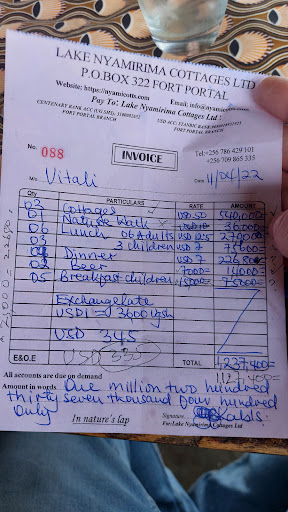 LAKE NYAMIRIMA COTTAGES LTD
P.O.BOX 322 FORT PORTAL
Website; https://nyamicotts.com Email: info@nyamicotts.com
Pay To: Lake Nyamirima Cottages Ltd :
CENTENARY BANK ACC (UG SHS)
FORT PORTAL BRANCH
USD ACC:
FORT PORTAL BRANCH
Tel: +256 786 429 101
+256 709 865 335
No. 088
INVOICE
M Vitali Date 11/04/22
Qty PARTICULARS RATE AMOUNT
03 Cottages USD 50 540,000=
01 Nature Walk USD 10 36,000=
06 Lunch 06 Adults USD 12.5 270,000=
03 3 children USD 7 75600=
Dinner USD 7 226,800=
02 Beer 7000= 14000=
05 Breakfast children 15000= 75000=
Exchange rate
USD1 = 3600 Ugsh
USD 345
USD
E&O.E TOTAL 1,237,400=
All accounts are due on demand
Amount in words One million two hundred
thirty seven thousand four hundred
only
In nature's lap
Signature
For: Lake Nyamirima Cottages Ltd